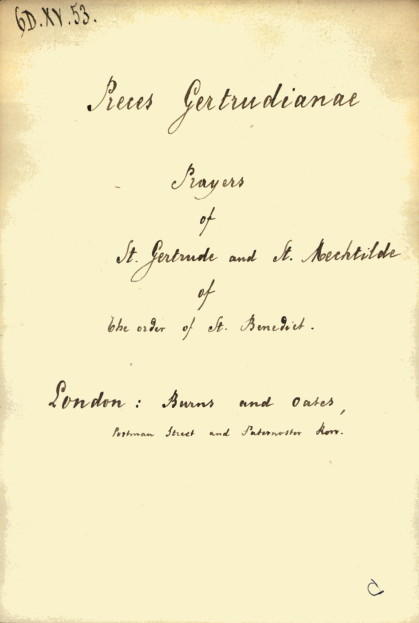 6D.XV.53.
Preces Gertrudianae
Prayers
of
St. Gertrude and St. Mechtilde
of
the order of St. Benedict.
London: Burns and Oates,
Portman Street and Paternoster Row.
C